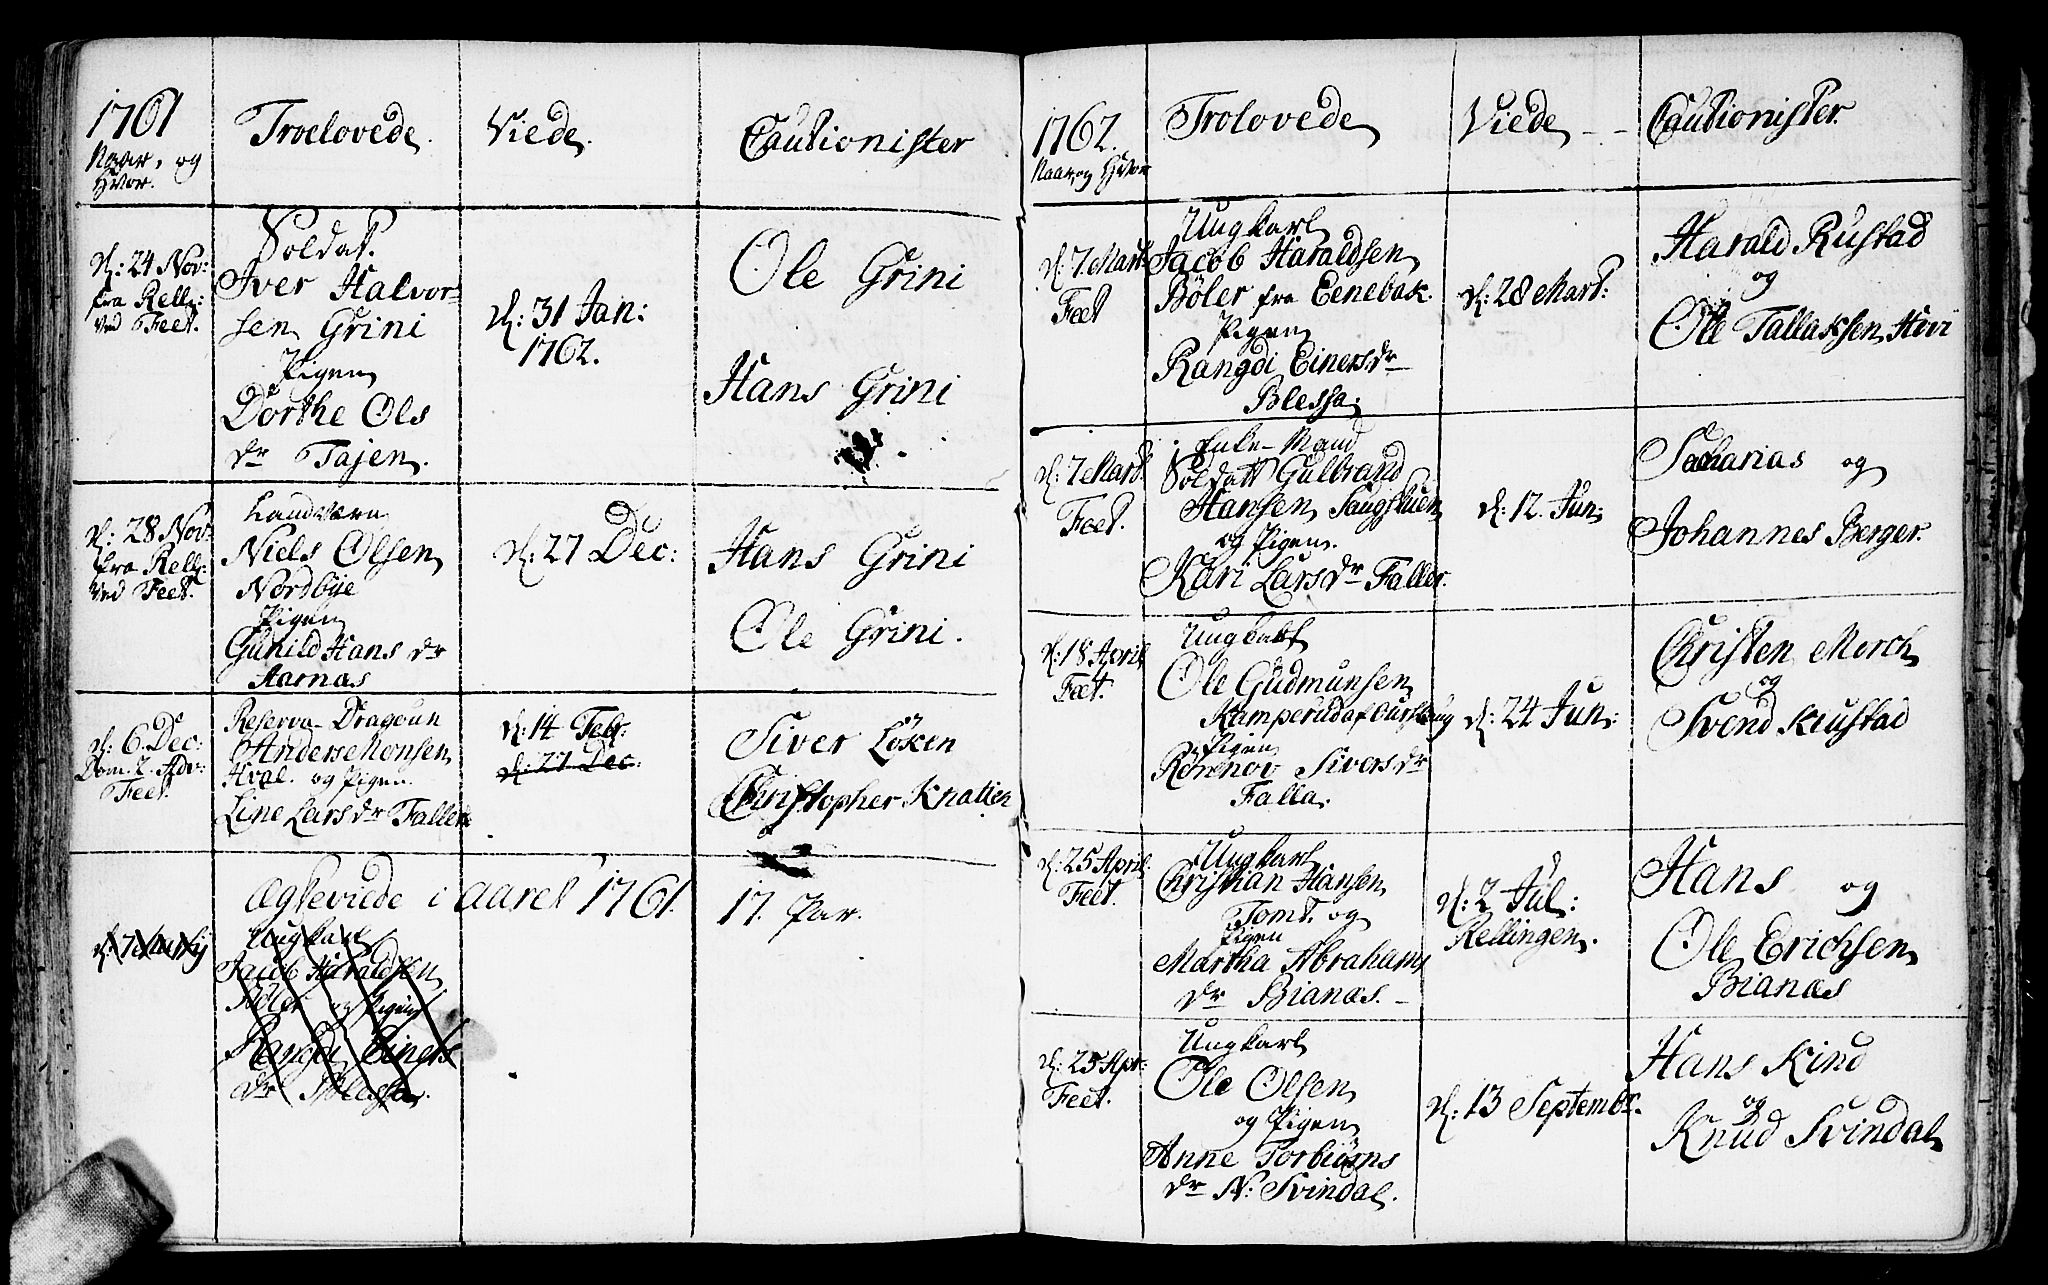 1761
Naar, og
Hvor.
Troelovede.
Viede.
Cautionister
d: 24 Nov:
fra Rell:
ved Feet.
Soldat.
Iver Halvor-
sen Grini
Pigen
Dorthe Ols
dr Tajen.
d: 31 Jan:
1762.
Ole Grini
Hans Grini
d: 28 Nov:
fra Rell:
ved Feet.
Landværn
Niels Olsen
Nordbye
Pigen
Gunild Hans dr
Aarnæs
d: 27 Dec:
Hans Grini
Ole Grini.
d: 6. Dec:
Dom. 2. Adv:
Feet.
Reserve-Dragoun
Anders Monsen
Hval. og Pigen
Line Lars dr Faller
d: 14 Febr:
d: 27 Dec:
Siver Löken
Christopher Knatten
Ægteviede i aaret 1761.
17. Par.
d: 7
Ungkarl
Jacob Haraldsen
Böler og Pigen
Rangdi Einers
dr Blessa.
1762.
Naar og Hvor
Trolovede
Viede - -
Cautionister.
d: 7 Mart:
Feet
Ungkarl
Jacob Haraldsen
Böler fra Eenebak.
Pigen
Rangdi Einersdr
Blessa.
d: 28 Mart:
Harald Rustad
og
Ole Tallaksen Hvi
d: 7 Mart.
Feet.
Enke-Mand
Soldatt Gulbrand
Hansen Saugstuen
og Pigen.
Kari Lars dr Faller.
d: 12. Jun:
Sacharias og
Johannes Berger.
d: 18 April
Feet.
Ungkarl
Ole Gudmunsen
Kamperud af Ourskoug
Pigen
Rönnov Sivers dr
Falla.
d: 24 Jun:
Christen Morch
og
Svend Krustad
d: 25 April.
Feet.
Ungkarl
Christian Hansen
Tomt. og
Pigen
Martha Abrahams
dr Bianæs. -
d: 2 Jul:
Rellingen.
Hans og
Ole Erichsen
Bianæs
d: 25 Apr:
Feet.
Ungkarl
Ole Olsen
og Pigen
Anne Torbiörns
dr N: Svindal.
d: 13 Septembr.
Hans Kind
og
Knud Svindal